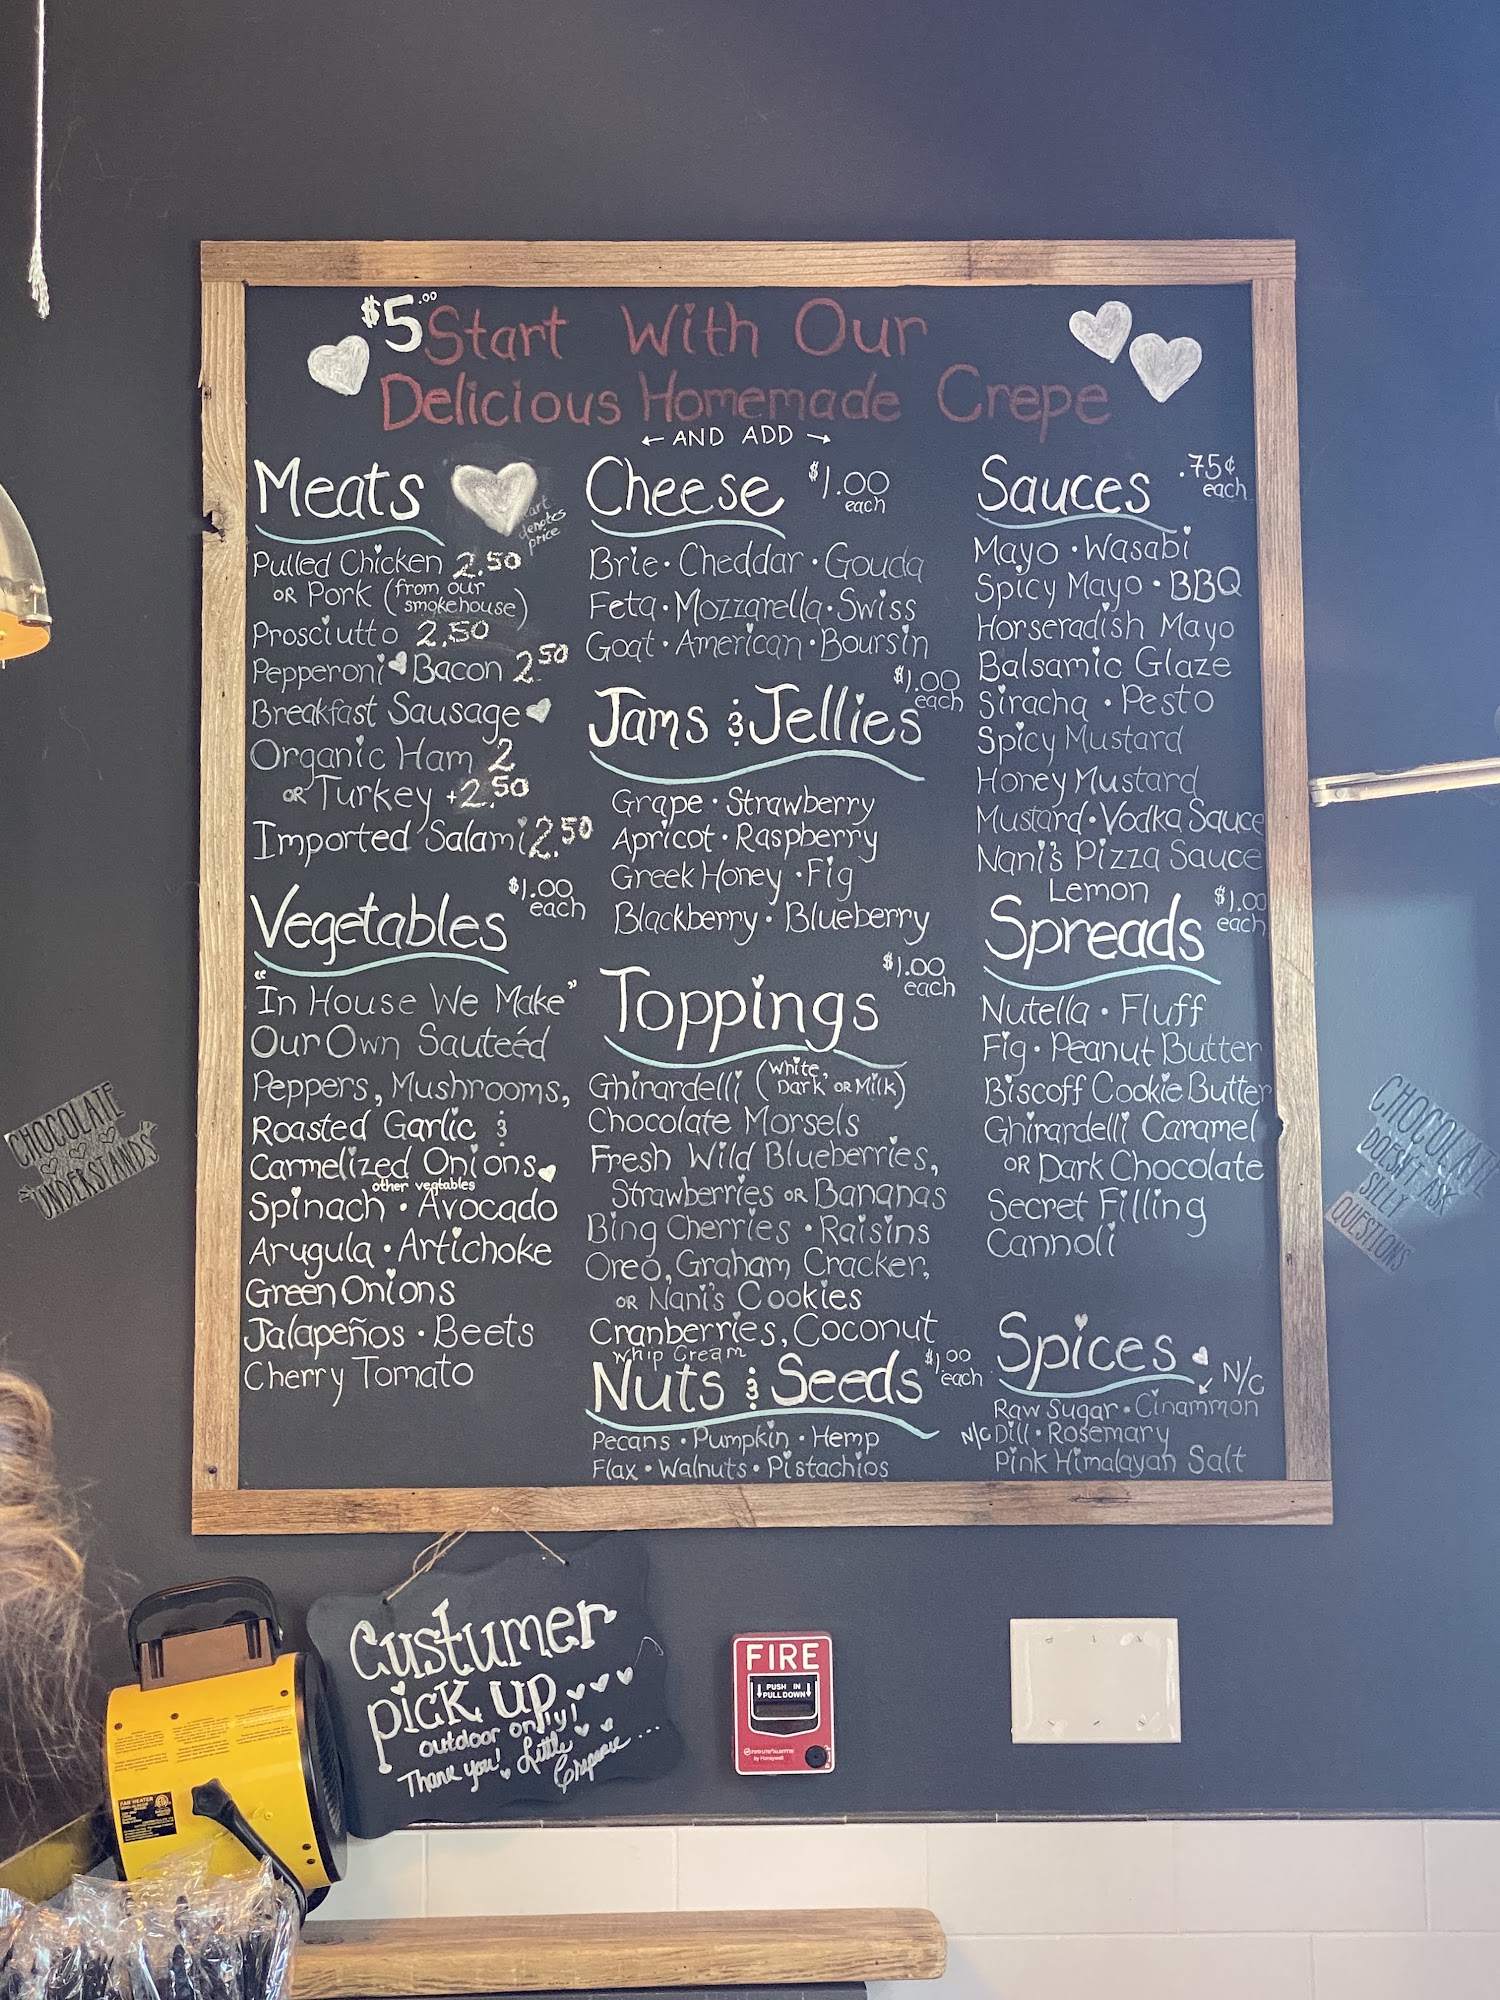 $5.00 Start With Our
Delicious Homemade Crepe
← AND ADD →
Meats
denotes
price
Pulled Chicken 2.50
OR Pork (from our
smokehouse)
Prosciutto 2.50
Pepperoni Bacon 2.50
Breakfast Sausage
Organic Ham 2
OR Turkey +2.50
Imported Salami 2.50
Vegetables $1.00
each
"In House We Make"
Our Own Sauteéd
Peppers, Mushrooms,
Roasted Garlic &
Carmelized Onions
other vegtables
Spinach · Avocado
Arugula · Artichoke
Green Onions
Jalapeños · Beets
Cherry Tomato
Cheese $1.00
each
Brie · Cheddar · Gouda
Feta · Mozzarella · Swiss
Goat · American · Boursin
$1.00
each
Jams & Jellies
Grape · Strawberry
Apricot · Raspberry
Greek Honey · Fig
Blackberry · Blueberry
Toppings $1.00
each
Ghirardelli (White,
Dark OR Milk)
Chocolate Morsels
Fresh Wild Blueberries,
Strawberries OR Bananas
Bing Cherries · Raisins
Oreo, Graham Cracker,
OR Nani's Cookies
Cranberries, Coconut
Whip Cream
Nuts & Seeds $1.00
each
Pecans · Pumpkin · Hemp
Flax · Walnuts · Pistachios
Sauces .75¢
each
Mayo · Wasabi
Spicy Mayo · BBQ
Horseradish Mayo
Balsamic Glaze
Siracha · Pesto
Spicy Mustard
Honey Mustard
Mustard · Vodka Sauce
Nani's Pizza Sauce
Lemon
Spreads $1.00
each
Nutella · Fluff
Fig · Peanut Butter
Biscoff Cookie Butter
Ghirardelli Caramel
OR Dark Chocolate
Secret Filling
Cannoli
Spices N/C
Raw Sugar · Cinammon
N/C Dill · Rosemary
Pink Himalayan Salt
CHOCOLATE
UNDERSTANDS
CHOCOLATE
DOESN'T ASK
SILLY
QUESTIONS
Custumer
pick up
outdoor only!
Thank you! Little
Creperie
FIRE
PUSH IN
PULL DOWN
by Honeywell
FAN HEATER